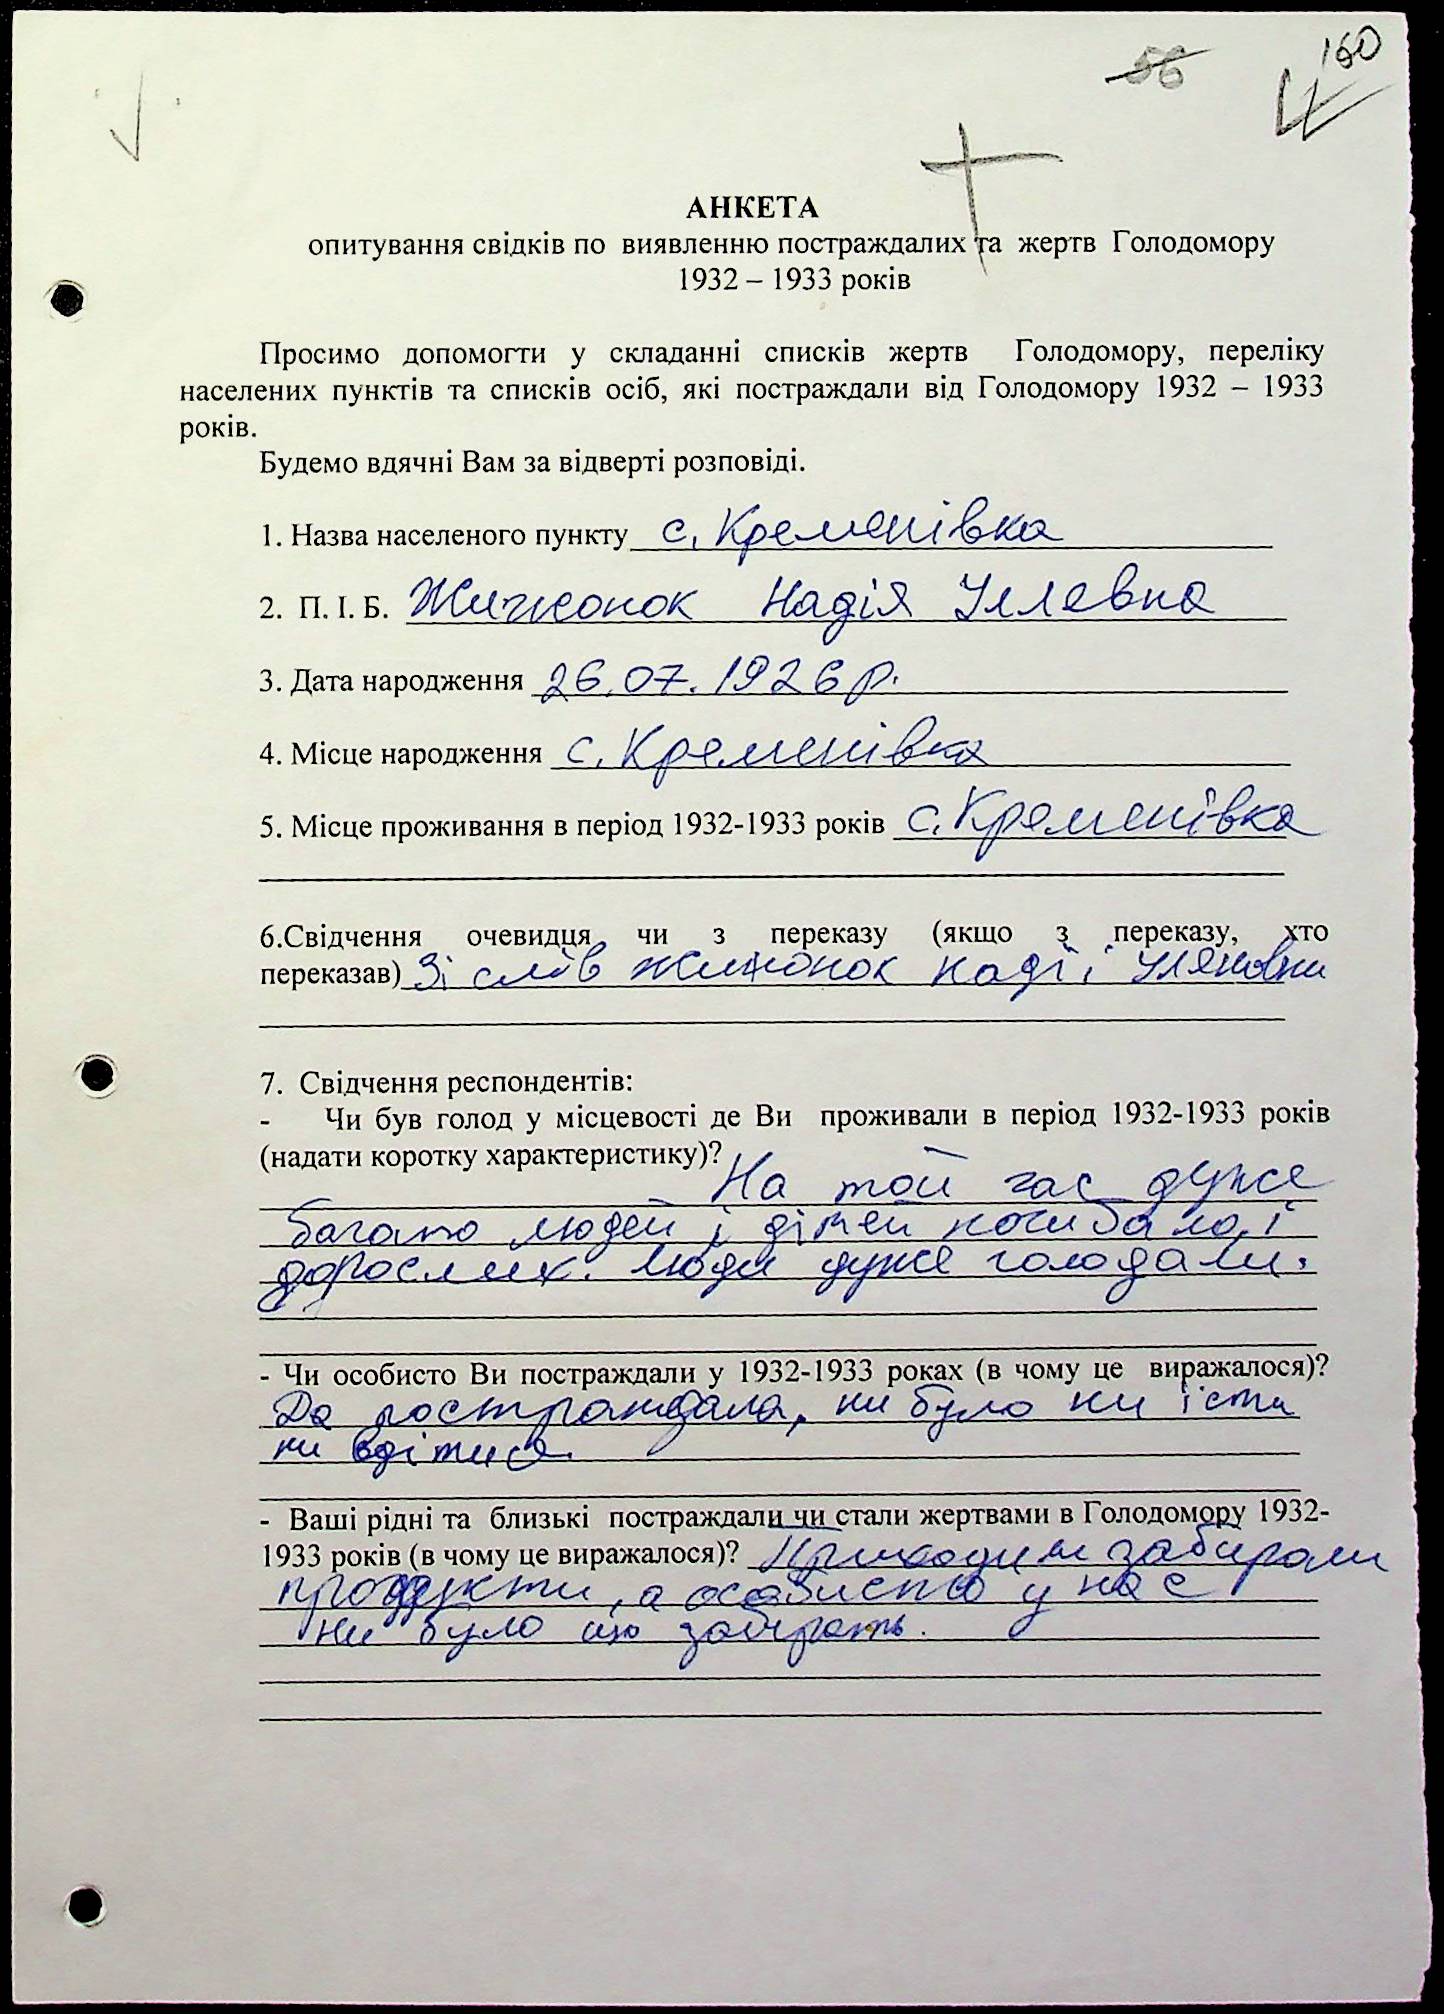 56
160
АНКЕТА
опитування свідків по виявленню постраждалих та жертв Голодомору
1932 – 1933 років
Просимо допомогти у складанні списків жертв Голодомору, переліку
населених пунктів та списків осіб, які постраждали від Голодомору 1932 – 1933
років.
Будемо вдячні Вам за відверті розповіді.
1. Назва населеного пункту с. Кременівка
2. П. І. Б. Надія
3. Дата народження 26.07.1926 р.
4. Місце народження с. Кременівка
5. Місце проживання в період 1932-1933 років с. Кременівка
6.Свідчення очевидця чи з переказу (якщо з переказу, хто
переказав) Зі слів надії Уляновни
7. Свідчення респондентів:
- Чи був голод у місцевості де Ви проживали в період 1932-1933 років
(надати коротку характеристику)?
На той час дуже
багато людей і дітей погибало і
дорослих. Люди дуже голодали.
- Чи особисто Ви постраждали у 1932-1933 роках (в чому це виражалося)?
Да постраждала, ни було ни їсти
ни вдітися.
- Ваші рідні та близькі постраждали чи стали жертвами в Голодомору 1932-
1933 років (в чому це виражалося)? Приходили забирали
продукти, а особисто у нас
ни було що забірать.